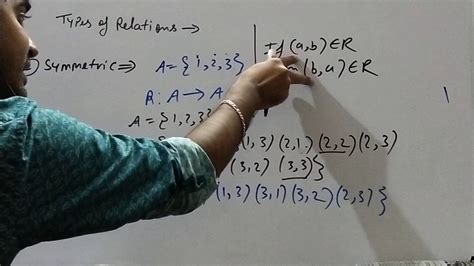 Types of Relations →
Symmetric ⇒ A = {1, 2, 3}
If (a,b) ∈ R
(b,a) ∈ R
R: A → A
A = {1, 2, 3
1,3) (2,1) (2,2) (2,3)
(3,2) (3,3)}
(1,3) (3,1) (3,2) (2,3) }